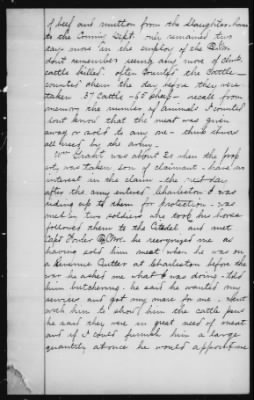 of beef and mutton from the slaughter-house
to the Comms Dept. only remained two
days more in the employ of the
dont remember seeing any more of clmts
cattle killed. often counted the cattle -
counted them the day before they were
taken 37 cattle - 65 sheep - recall from
memory the number of animals I counted
dont know that the meat was given
away or sold to any one - think it was
all used by the army.
Wm was about 20 when the prop-
erty was taken, son of claimant - have no
interest in the claim - the next day
after the army entered Charleston I was
riding up to them for protection - was
met by two soldiers who took his horse
followed them to the Citadel and met
Capt he recognized me as
having sold him meat when he was on
a Revenue Cutter at Charleston before the
war he asked me what I was doing - told
him butchering. he said he wanted my
services and got my mare for me. went
with him to show him the cattle pens
he said they were in great need of meat
and if I could furnish him a large
quantity at once he would appoint me